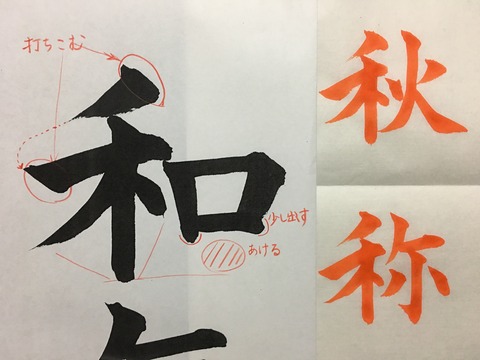 打ちこむ
和
少し出す
あける
秋
称